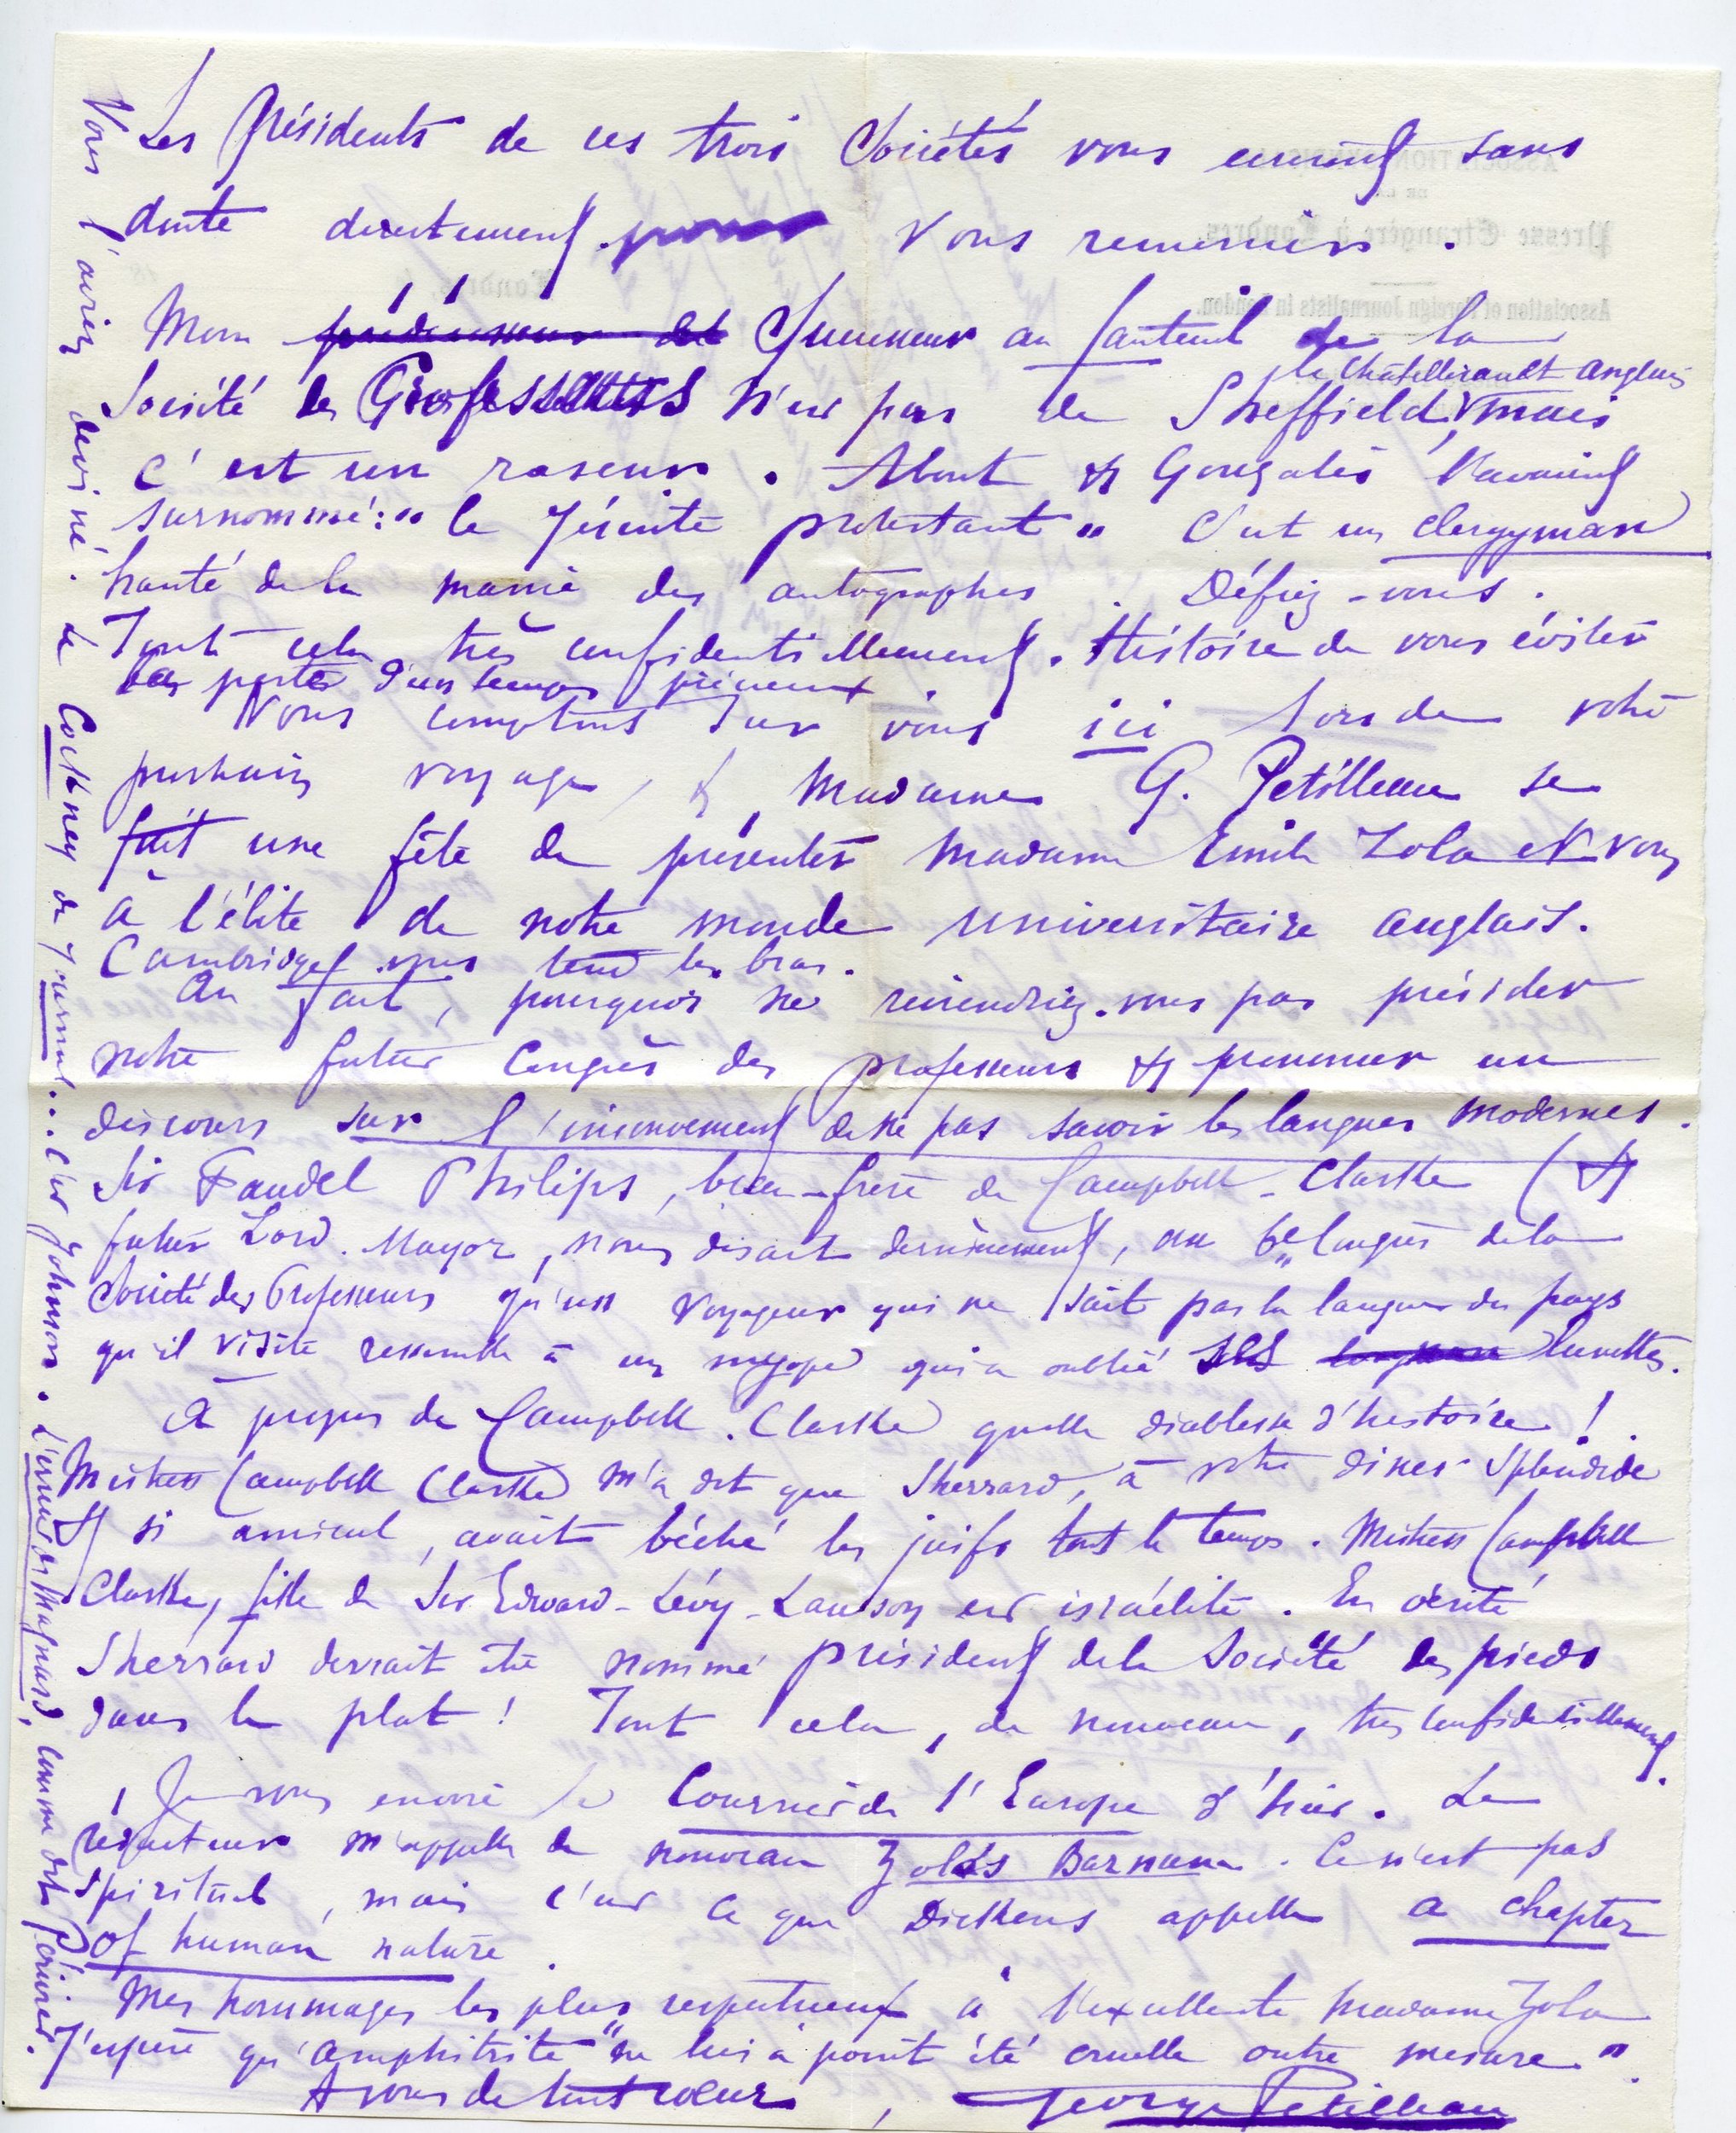 Les Présidents de ces trois Sociétés vous écriront sans
doute directement pour vous remercier.
Mon prédécesseur Successeur au fauteuil de la
Société des Professeurs n'est pas de Sheffield, mais
le Châtellerault anglais
c'est un raseur. About & Gonzalès l'avaient
surnommé: "le Jésuite protestant" C'est un clergyman
hanté de la manie des autographes. Défiez-vous.
Tout cela très confidentiellement. Histoire de vous éviter
des pertes d'un temps précieux.
Nous comptons sur vous ici lors de votre
prochain voyage, & Madame G. Petilleau se
fait une fête de présenter Madame Emile Zola et vous
à l'élite de notre monde universitaire anglais.
Cambridge vous tend les bras.
Au fait, pourquoi ne reviendriez-vous pas présider
notre futur Congrès des professeurs & prononcer un
discours sur l'inconvénient de ne pas savoir les langues modernes.
Sir Faudel Philips, beau-frère de Campbell-Clarke (&
futur Lord-Mayor, nous disait dernièrement, au Congrès de la
Société des Professeurs qu'un voyageur qui ne sait pas la langue du pays
qu'il visite ressemble à un myope qui a oublié ses lunettes.
A propos de Campbell-Clarke quelle diablesse d'histoire!
Mistress Campbell Clarke m'a dit que Sherrard, à votre dîner splendide
& si amical, avait bêché les juifs tout le temps. Mistress Campbell
Clarke, fille de Sir Edward-Lévy-Lawson est israélite. En vérité
Sherrard devrait être nommé président de la Société des pieds
dans le plat! Tout cela, de nouveau, très confidentiellement.
Je vous envoie le Courrier de l'Europe d'hier. Le
rédacteur m'appelle de nouveau Zola's Barnum. Ce n'est pas
spirituel, mais c'est ce que Dickens appelle a chapter
of human nature.
Mes hommages les plus respectueux à l'excellente Madame Zola
J'espère qu'"Amphitrite ne lui a point été cruelle outre mesure".
A vous de tout cœur,
George Petilleau
Vous l'aviez deviné. Le Cockney de ... c'est Johnson. L'erreur de Magnard, comme dit Périvier.